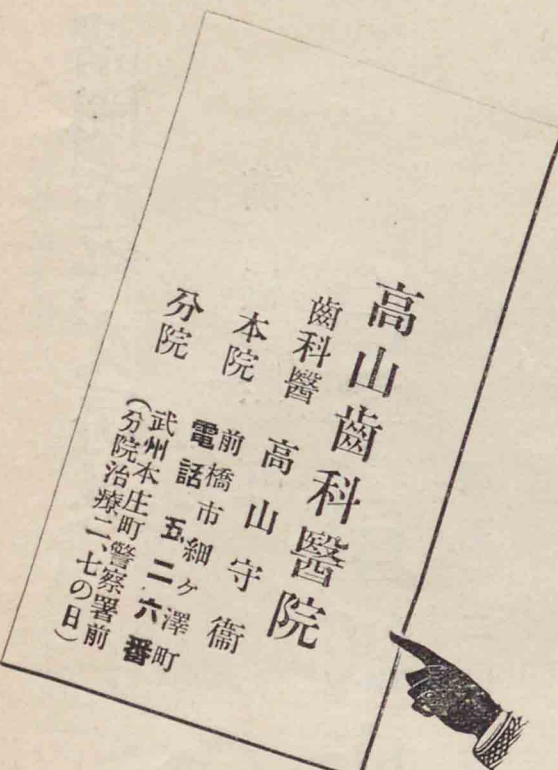 高山齒科醫院
齒科醫 高山守衞
本院 前橋市細ヶ澤町
電話 五二六番
分院 武州本庄町警察署前
(分院治療二、七の日)